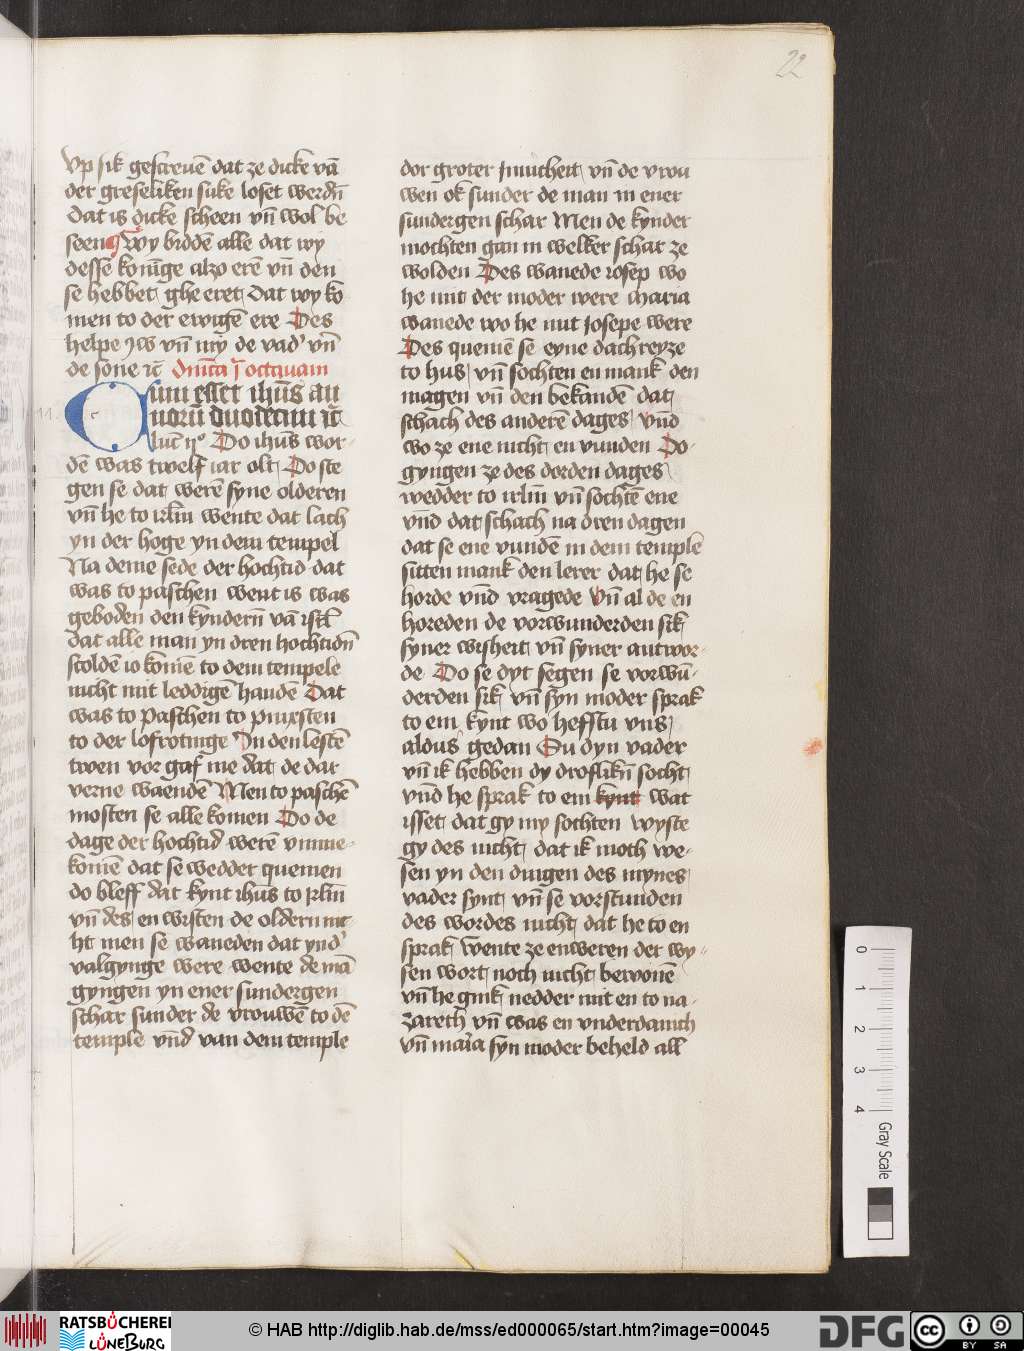 22
vp sik gescreuē dat ze dicke vā
der greseliken suke loset werdn̄
Dat is dicke scheen vn̄ wol be
seen Wy biddē alle dat wy
desse konīge alzo erē vn̄ den
se hebbet ghe eret dat wy ko
men to der ewigē ere Des
helpe vn̄ my de vad' vn̄
de sone
Cum esset ihūs an
norū duodecim
luc̄ ij° Do ihūs wor
dē was twelf iar olt Do ste
gen se dat werē syne olderen
vn̄ he to irlm̄ wente dat lach
yn der hoge yn dem tempel
Na deme sede der hochtid dat
was to paschen went is was
geboden den kyndern̄ vā isrl̄
dat alle man yn dren hochtidn̄
scoldē io komē to dem tempele
nicht mit leddigē handē Dat
was to paschen to pinxsten
to der lofrotinge In den lestē
twen vor gaf me dat de dar
verne waendē Men to paschē
mosten se alle komen Do de
dage der hochtid werē vmme
komē dat se wedder quemen
do bleff dat kynt ihūs to irlm̄
vn̄ des en wisten de oldern ni
ht men se waneden dat ynd'
valgynge were wente de mā
gyngen yn ener sundergen
schar sunder de vrouwē to dē
temple vn̄d van dem temple
dor groter Innicheit vn̄ de vrou
wen ok sunder de man in ener
sundergen schar Men de kynder
mochten gan in welker schar ze
wolden Des wanede iosep wo
he mit der moder were maria
wanede wo he mit Josepe were
Des quemē se eyne dachreyze
to hus vn̄ sochten en mank den
magen vn̄ den bekandē dat
schach des anderē dages vn̄d
wo ze ene nicht en vunden Do
gyngen ze des dordē dages
wedder to irlm̄ vn̄ sochtē ene
vn̄d dat schach na dren dagen
dat se ene vundē in dem temple
sitten mank den lerer dat he se
horde vn̄d vragede vn̄ al de en
horeden de vorwunderden sik
syner wisheit vn̄ syner antwor
de Do se dyt segen se vorwū
derden sik vn̄ syn moder sprak
to em kynt wo hefstu vns
aldus gedan Su dyn vader
vn̄ ik hebben dy droflikn̄ socht
vn̄d he sprak to em kynt wat
isset dat gy my sochten wyste
gy des nicht dat ik moth we
sen yn den dingen des mynes
vader synt vn̄ se vorstunden
des wordes nicht dat he to en
sprak wente ze en weren der wy
sen wort noch nicht bewonē
vn̄ he gink nedder mit en to na
zareth vn̄ was en vnderdanich
vn̄ maria syn moder beheld all
0 1 2 3 4 Gray Scale
RATSBÜCHEREI
LÜNEBURG
© HAB http://diglib.hab.de/mss/ed000065/start.htm?image=00045
DFG
cc BY SA